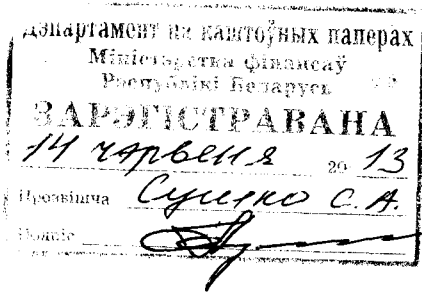 Дэпартамент па каштоўных паперах
Міністэрства фінансаў
Рэспублікі Беларусь
ЗАРЭГІСТРАВАНА
14 чэрвеня 20 13
Прозвішча Сушко С. А.
Подпіс